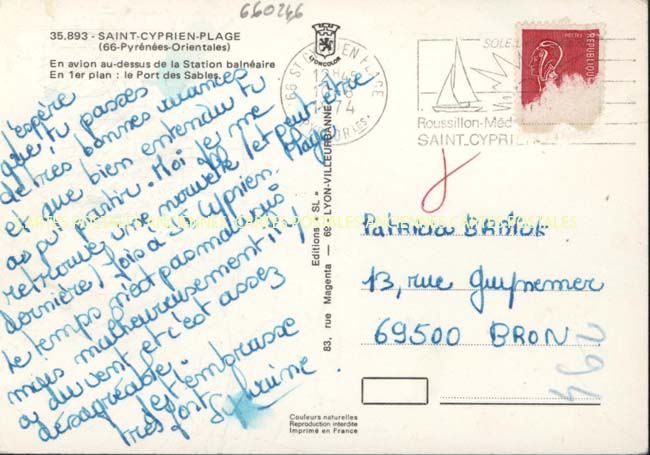 660246
35.893 - SAINT-CYPRIEN-PLAGE
(66-Pyrénées-Orientales)
En avion au-dessus de la Station balnéaire
En 1er plan : le Port des Sables.
LYONCOLOR
66 ST CYPRIEN PLAGE
1974
SOLEIL
Roussillon-Méd
SAINT-CYPRIEN
POSTES
REPUBLIQUE
J'espère
que tu passes
de très bonnes vacances
et que bien entendu tu
as pu partir. Moi je me
retrouve une nouvelle (et peut-être
dernière) fois à St Cyprien. Plage
Le temps n'est pas mal
mais malheureusement il y
a du vent et c'est assez
désagréable.
Je t'embrasse
très fort
CARTES POSTALES ANCIENNES CARTES POSTALES ANCIENNES CARTES POSTALES
Editions "SL"
83, rue Magenta — 69 LYON-VILLEURBANNE
Patricia
13, rue Guynemer
69500 BRON
194
Couleurs naturelles
Reproduction interdite
Imprimé en France